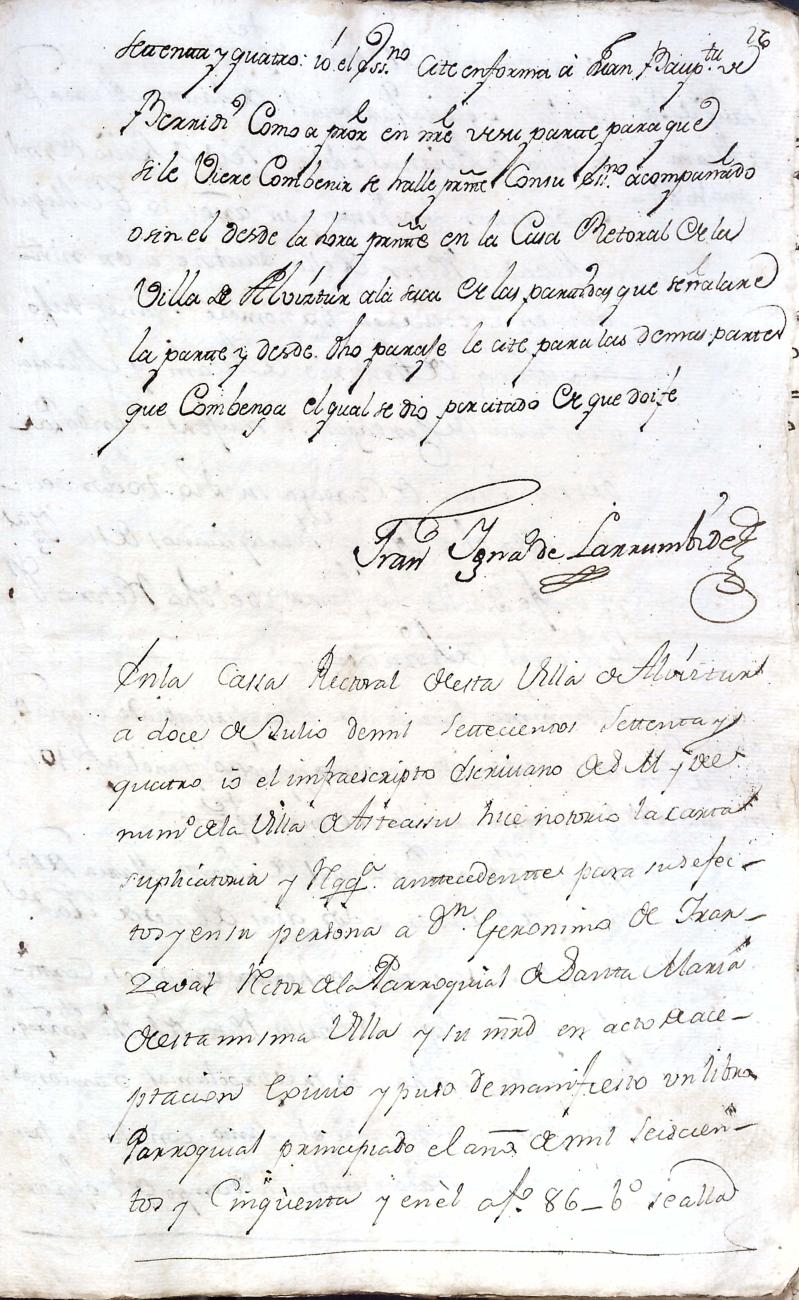 26
settenta y quatro: io el Ess.no Cite enforma à Juan Baup.ta de
Berridi Como a pror en nre de su parte para que
si le Viere Combenir se halle prnte Consu Ess.no acompañado
o sin el desde la hora prnte en la Casa Retoral de la
Villa de Alviztur ala saca de las partidas que señalare
la parte y desde dho paraje le cite para las demas partes
que Combenga el qual se dio por citado de que doi fe
Fran.co Igna.o de Larrumbide
En la Cassa Rectoral de esta Villa de Alviztur
a doce de Julio de mil settecientos settenta y
quatro io el infraescripto Escrivano de S M y del
num.o de la Villa de Asteassu hice notoria la carta
suplicatoria y antecedentte para sus efec-
tos y en su persona a Dn. Geronimo de Iran-
zaval Rector de la Parroquial de Santa Maria
de esta misma Villa y su mrd en acto de ace-
ptacion Exivio y puso de manifiesto un libro
Parroquial principiado el año de mil seiscien-
tos y Cinqüenta y en èl a fo. 86-bo se alla